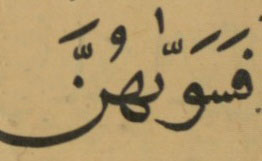 فَسَوّٰىهُنَّ